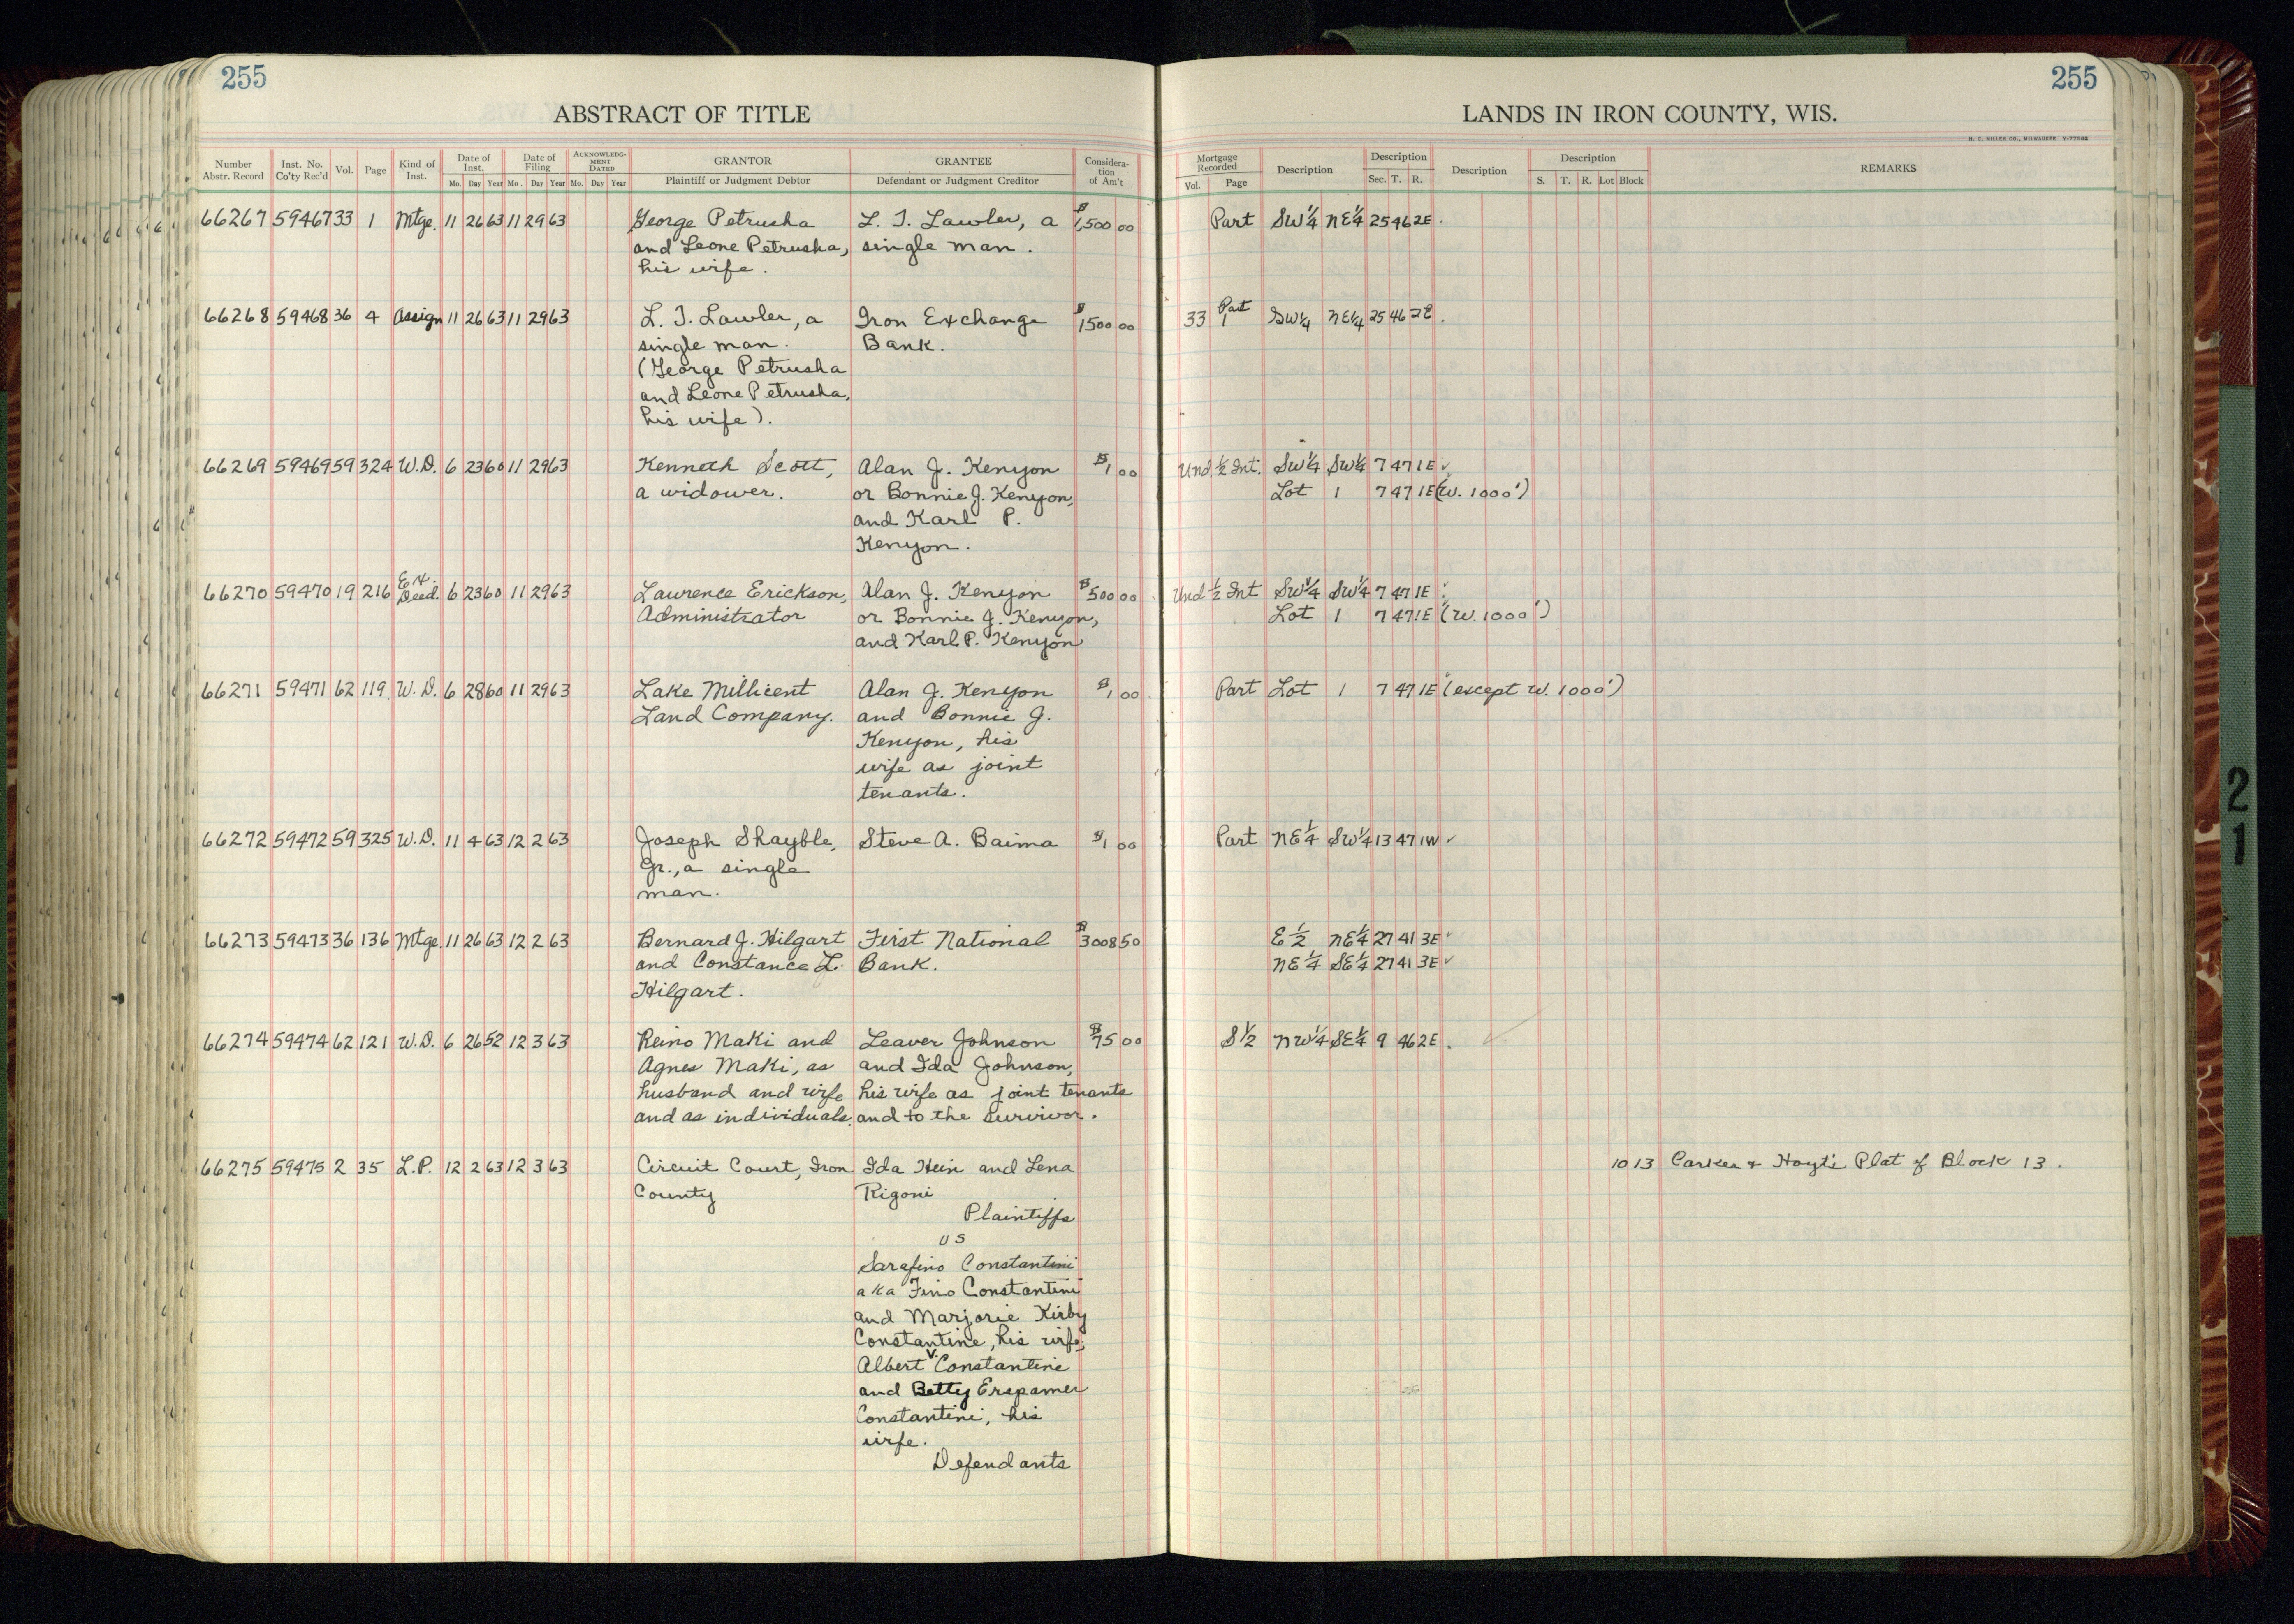 255
255
ABSTRACT OF TITLE
LANDS IN IRON COUNTY, WIS.
H. C. MILLER CO., MILWAUKEE
Number Abstr. Record | Inst. No. Co'ty Rec'd | Vol. | Page | Kind of Inst. | Date of Inst. Mo. Day Year | Date of Filing Mo. Day Year | ACKNOWLEDGMENT DATED Mo. Day Year | GRANTOR Plaintiff or Judgment Debtor | GRANTEE Defendant or Judgment Creditor | Consideration of Am't | Mortgage Recorded Vol. Page | Description | Description Sec. T. R. | Description | Description S. T. R. Lot Block | REMARKS
66267 59467 33 1 Mtge. 11 26 63 11 29 63 George Petrusha L. T. Lawler, a $1,500 00 Part SW 1/4 NE 1/4 25 46 2E.
and Leone Petrusha, single man.
his wife.
66268 59468 36 4 Assign 11 26 63 11 29 63 L. T. Lawler, a Iron Exchange $1500 00 33 Part 1 SW 1/4 NE 1/4 25 46 2E.
single man. Bank.
(George Petrusha
and Leone Petrusha,
his wife).
66269 59469 59 324 W.D. 6 23 60 11 29 63 Kenneth Scott, Alan J. Kenyon $1 00 Und. 1/2 Int. SW 1/4 SW 1/4 7 47 1E ✓
a widower. or Bonnie J. Kenyon, Lot 1 7 47 1E (W. 1000')
and Karl P.
Kenyon.
66270 59470 19 216 Ex. Deed. 6 23 60 11 29 63 Lawrence Erickson, Alan J. Kenyon $500 00 Und 1/2 Int SW 1/4 SW 1/4 7 47 1E ✓
Administrator or Bonnie J. Kenyon, Lot 1 7 47 1E (W. 1000')
and Karl P. Kenyon
66271 59471 62 119 W.D. 6 28 60 11 29 63 Lake Millicent Alan J. Kenyon $1 00 Part Lot 1 7 47 1E (except W. 1000')
Land Company. and Bonnie J.
Kenyon, his
wife as joint
tenants.
66272 59472 59 325 W.D. 11 4 63 12 2 63 Joseph Shayble, Steve A. Baima $1 00 Part NE 1/4 SW 1/4 13 47 1W ✓
Jr., a single
man.
66273 59473 36 136 Mtge. 11 26 63 12 2 63 Bernard J. Hilgart First National $3008 50 E 1/2 NE 1/4 27 41 3E ✓
and Constance L. Bank. NE 1/4 SE 1/4 27 41 3E ✓
Hilgart.
66274 59474 62 121 W.D. 6 26 52 12 3 63 Reino Maki and Leaver Johnson $75 00 S 1/2 NW 1/4 SE 1/4 9 46 2E.
Agnes Maki, as and Ida Johnson,
husband and wife his wife as joint tenants
and as individuals. and to the survivor.
66275 59475 2 35 L.P. 12 2 63 12 3 63 Circuit Court, Iron Ida Hein and Lena 10 13 Carkee & Hoyt's Plat of Block 13.
County Rigoni
Plaintiffs
vs
Sarafino Constantini
aka Fino Constantini
and Marjorie Kirby
Constantine, his wife;
Albert V. Constantine
and Betty Erspamer
Constantini, his
wife.
Defendants
21